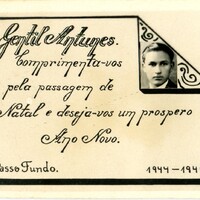 Gentil Antunes.
Comprimenta-vos
pela passagem de
Natal e deseja-vos um prospero
Ano Novo.
Passo Fundo. 1944-194